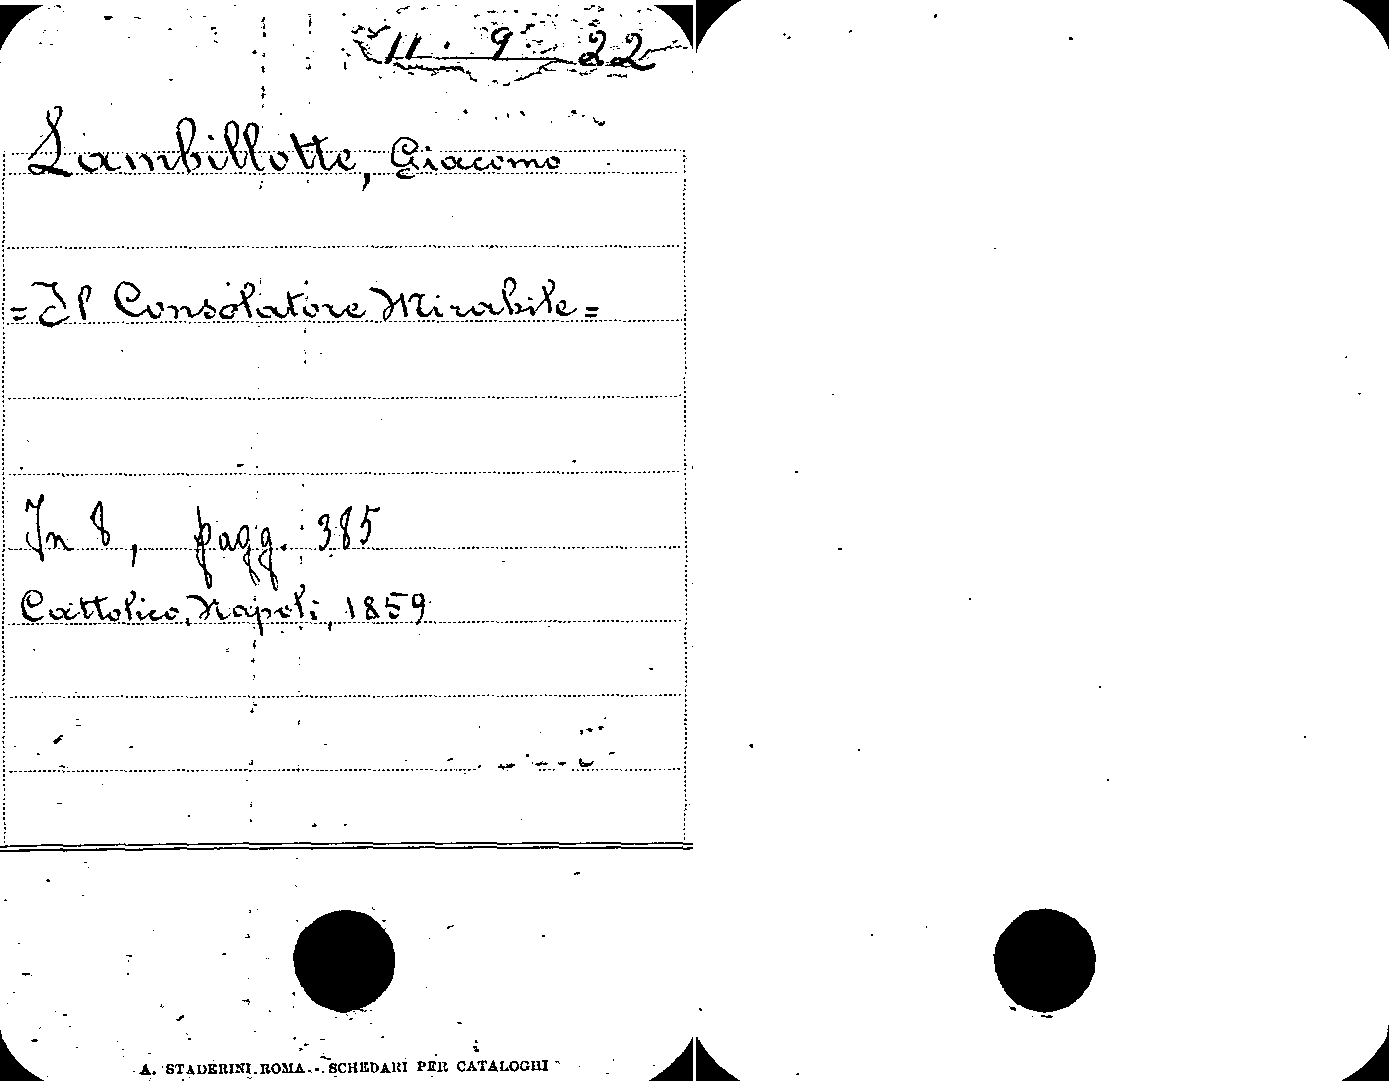 11. 9. 22
Lambillotte, Giacomo
=Il Consolatore Mirabile=
In 8, pagg. 385
Cattolico, Napoli, 1859
A. STADERINI. ROMA. - SCHEDARI PER CATALOGHI